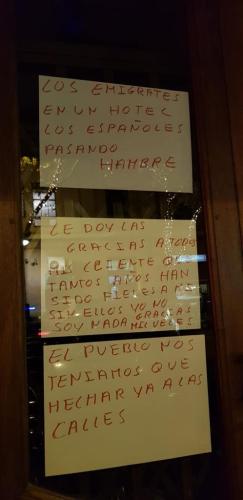 LOS EMIGRATES
EN UN HOTEL
LOS ESPAÑOLES
PASANDO
HAMBRE
LE DOY LAS
GRACIAS A TODOS
MIS CLIENTE QUE
TANTOS AÑOS HAN
SIDO FIELES A MI
SIN ELLOS YO NO
SOY NADA GRACIAS
MIGUELES
EL PUEBLO NOS
TENIAMOS QUE
HECHAR YA A LAS
CALLES